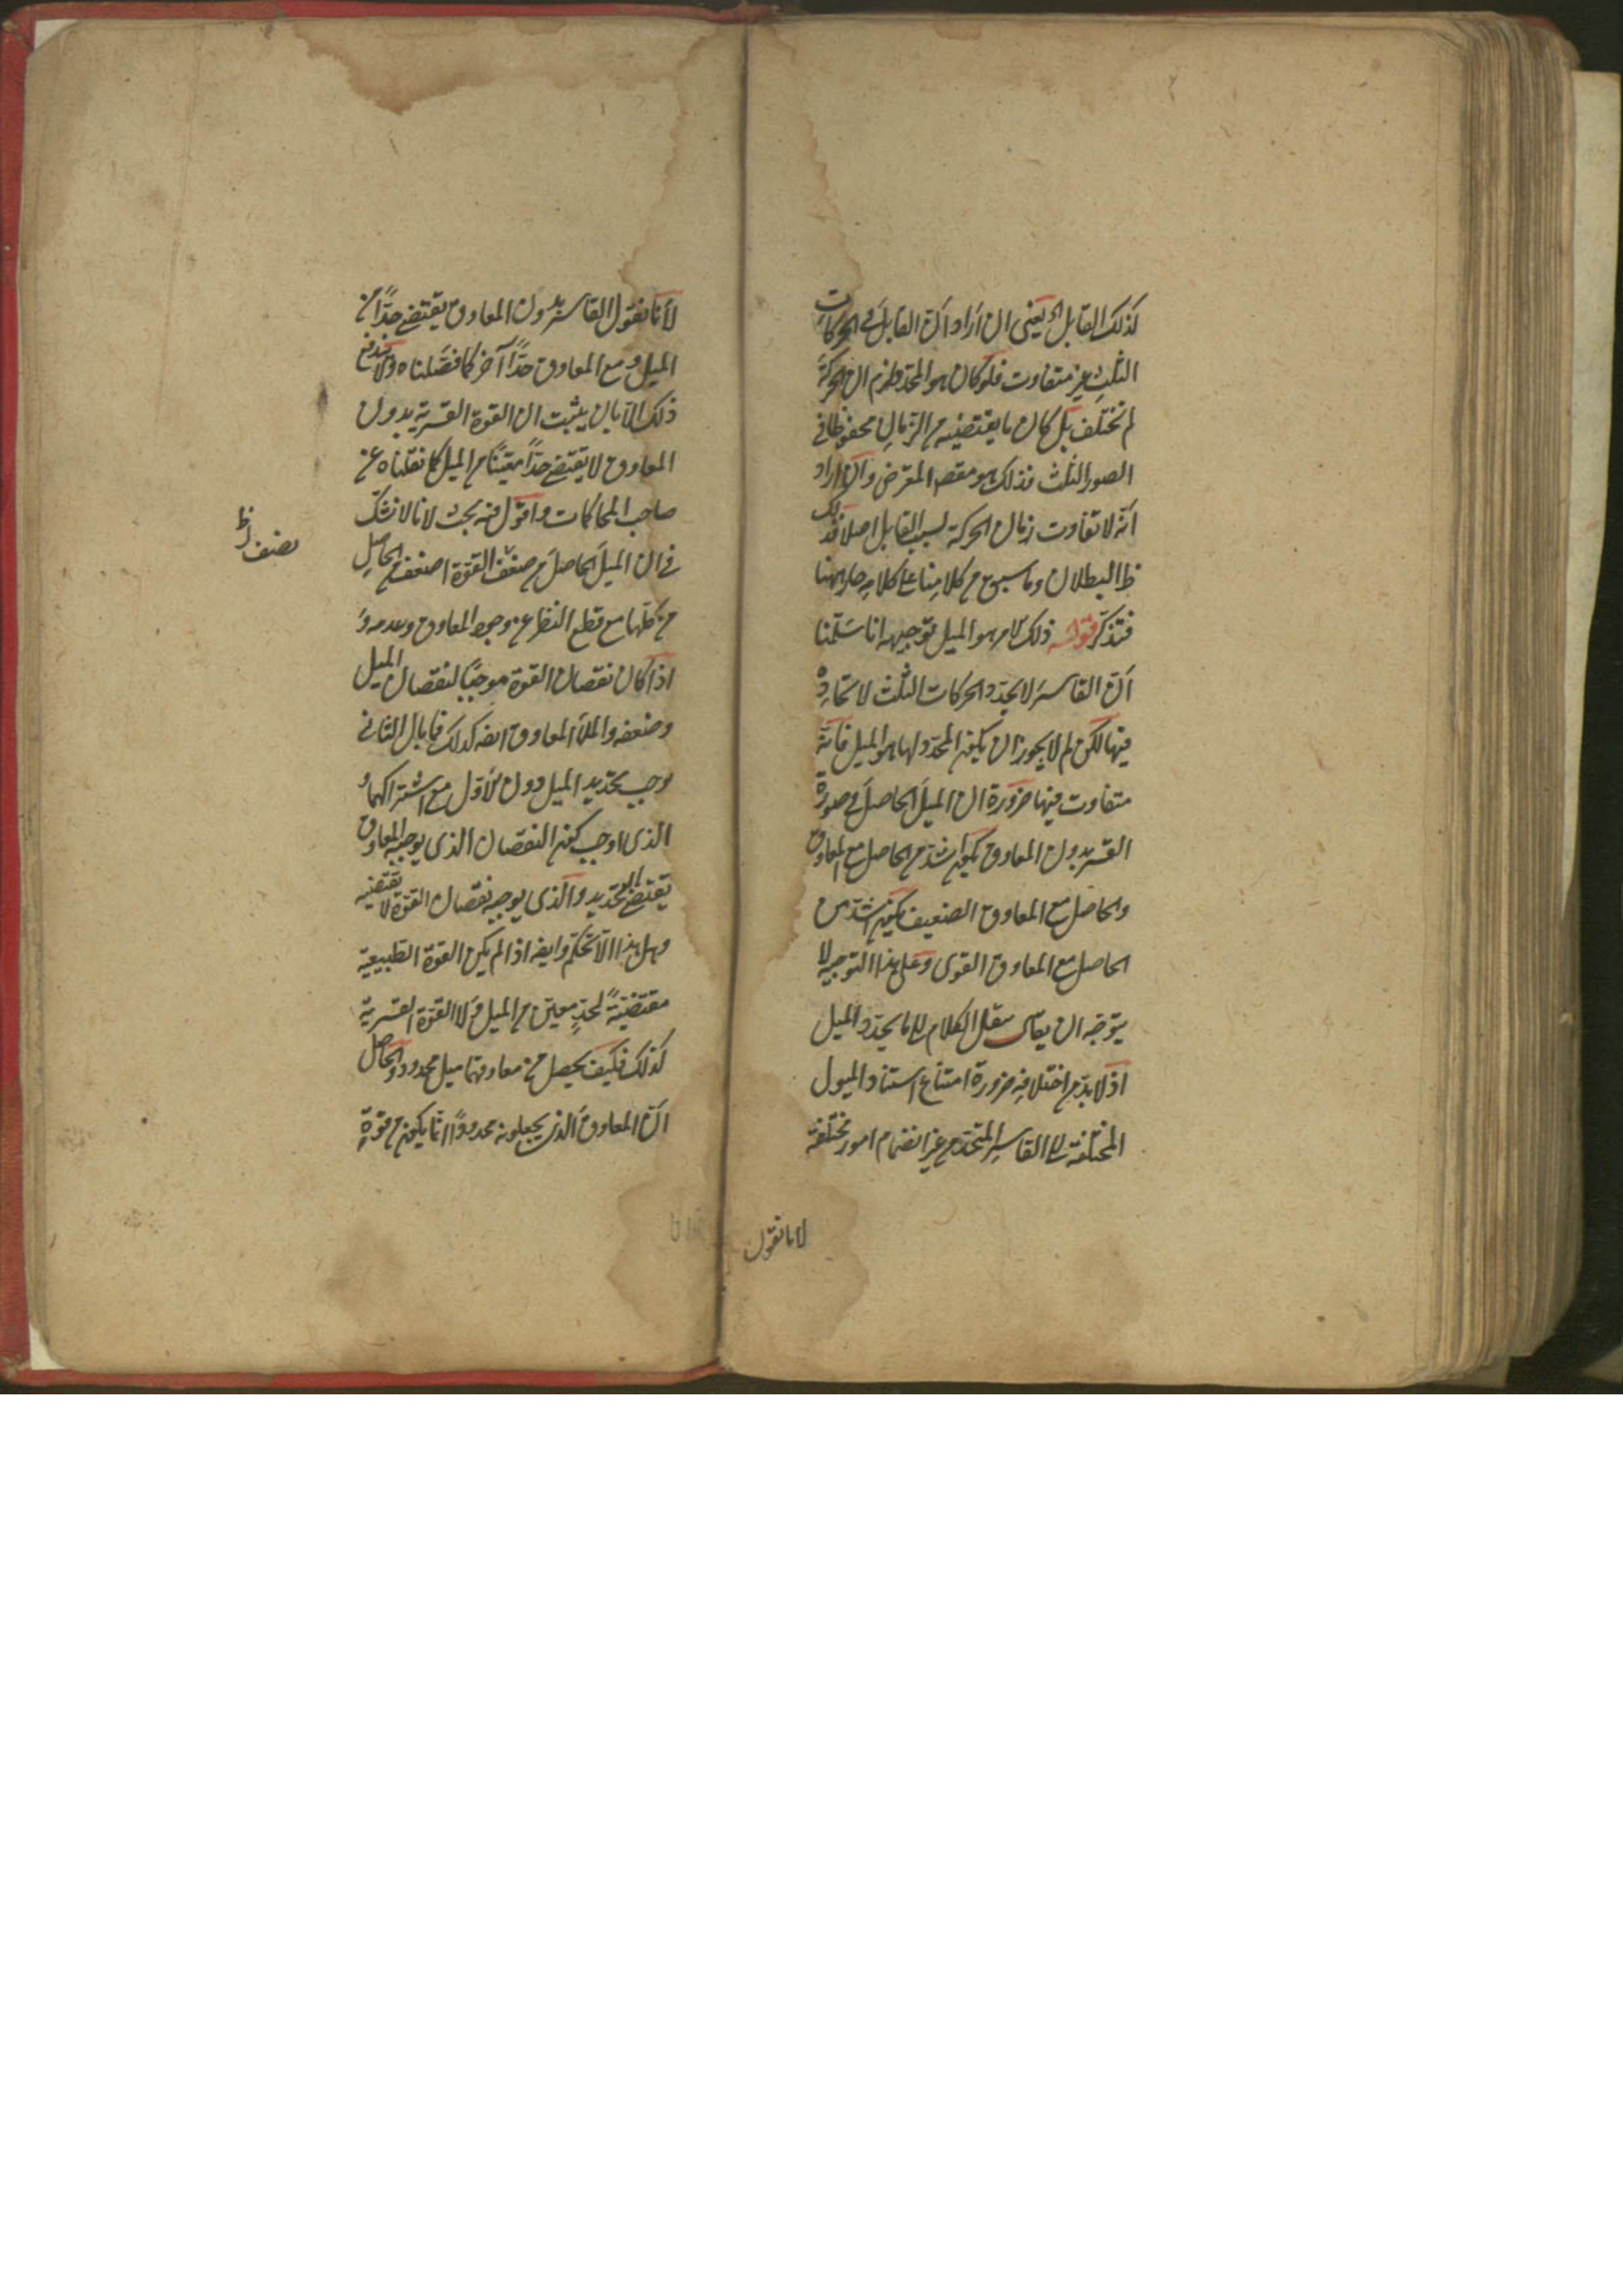 كذلك القابل اه يعنى ان اراد ان القابل في الحركات
الثلث غير متفاوت فلو كان هو المحدد لزم ان الحركة
لم تختلف بل كان ما يقتضيه من الزمان محفوظا في
الصور الثلث فذلك هو مقصد المعترض وان اراد
انه لا تفاوت زمان الحركة بسبب القابل اصلا فذلك
ظ البطلان وما سبق من كلامنا على كلامه جار ههنا
فتذكر قوله ذلك الامر هو الميل توجيهه انا سلمنا
ان القاسر لا يحدد الحركات الثلث لاتحاده
فيها لكن لم لا يجوز ان يكون المحدد لها هو الميل فانه
متفاوت فيها ضرورة ان الميل الحاصل في صورة
القسر بدون المعاوق يكون اشد من الحاصل مع المعاوق
والحاصل مع المعاوق الضعيف يكون اشد من
الحاصل مع المعاوق القوى وعلى هذا التوجيه لا
يتوجه ان يقال ننقل الكلام الى ما يحدد الميل
اذ لا بد من اختلافه ضرورة امتناع استناد الميول
المختلفة الى القاسر المتحد من غير انضمام امور مختلفة
لانا نقول
لأنا نقول القاسر بدون المعاوق يقتضى حدًّا من
الميل ومع المعاوق حدًّا آخر كما فصلناه ولا يندفع
ذلك الا بان يثبت ان القوة القسرية بدون
المعاوق لا تقتضى حدًّا معينًا من الميل كما نقلناه عن
صاحب المحاكمات واقول فيه بحث لانا لا نشك
في ان الميل الحاصل من ضعف القوة اضعف من الحاصل
من كلها مع قطع النظر عن وجود المعاوق وعدمه و
اذا كان نقصان القوة موجبًا لنقصان الميل
وضعفه والملأ المعاوق ايضه كذلك فما بال الثانى
يوجب تحديد الميل دون الاول مع اشتراكهما و
الذى اوجب كون النقصان الذى يوجبه المعاوق
يقتضى التحديد والذى يوجبه نقصان القوة لا يقتضيه
وهل هذا الا تحكم وايضه اذا لم يكن القوة الطبيعية
مقتضيةً لحدٍ معين من الميل ولا القوة القسرية
كذلك فكيف يحصل من معاوقهما ميل محدود والحاصل
ان المعاوق الذى يجعلونه محددًا انما يكون من قوةٍ
نصف ظ